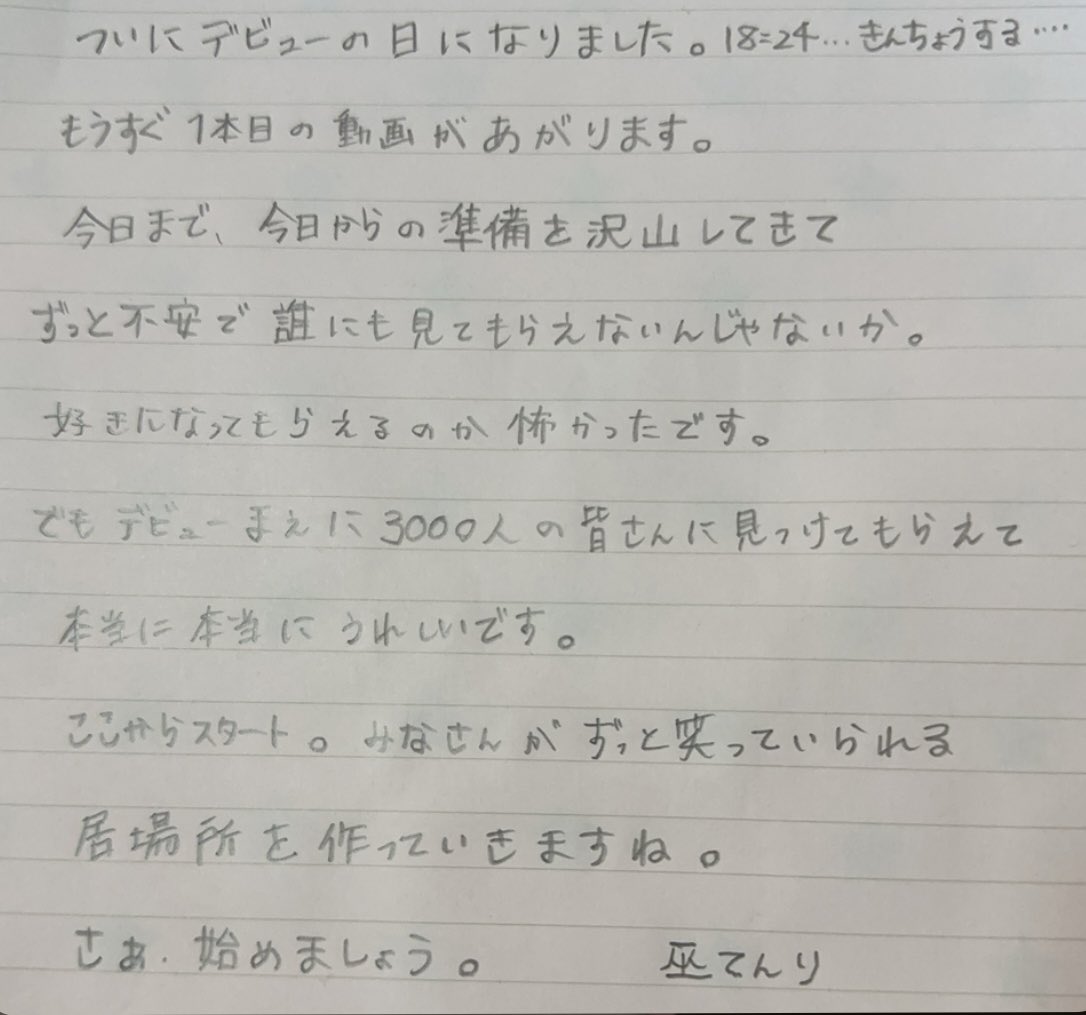 ついにデビューの日になりました。18=24…きんちょうする….
もうすぐ1本目の動画があがります。
今日まで、今日からの準備を沢山してきて
ずっと不安で誰にも見てもらえないんじゃないか。
好きになってもらえるのか怖かったです。
でもデビューまえに3000人の皆さんに見つけてもらえて
本当に本当にうれしいです。
ここからスタート。みなさんがずっと笑っていられる
居場所を作っていきますね。
さぁ.始めましょう。 巫てんり